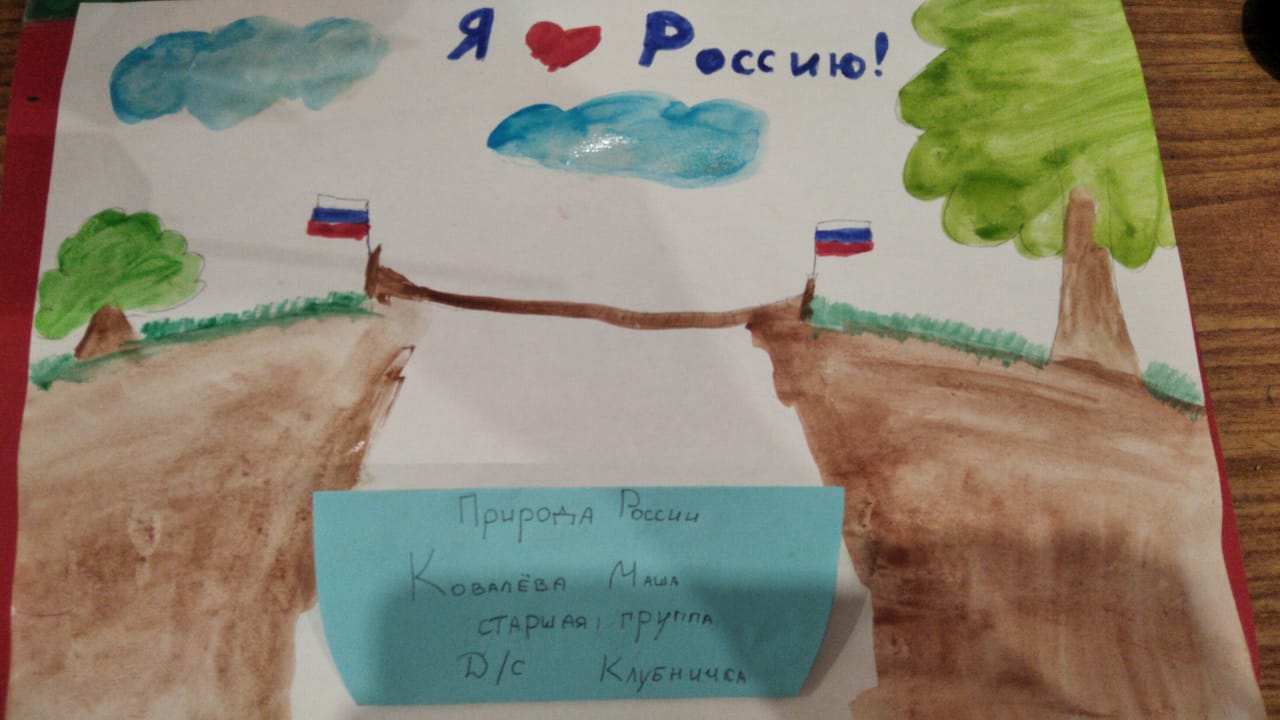 Я ❤ Россию!
Природа России
Ковалёва Маша
старшая группа
Д/с Клубничка